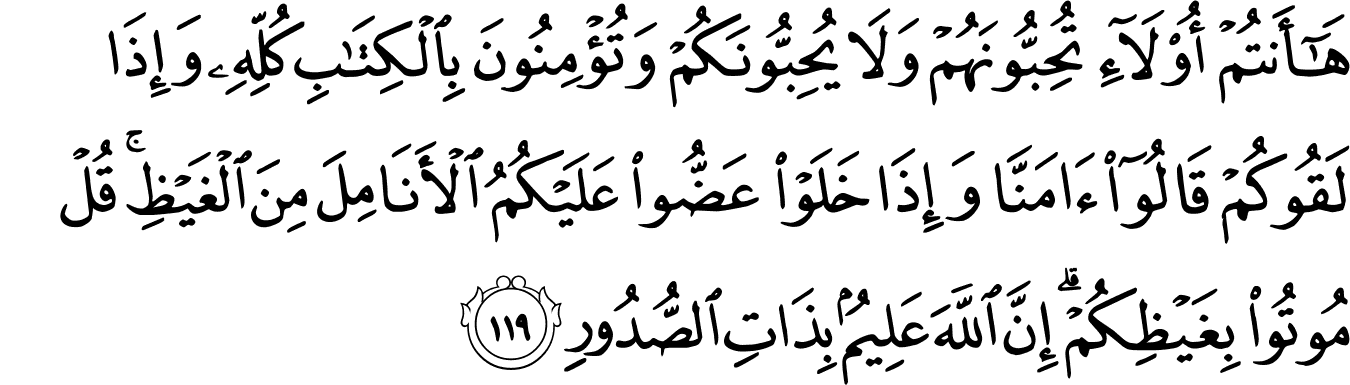 هَٰٓأَنتُمْ أُو۟لَآءِ تُحِبُّونَهُمْ وَلَا يُحِبُّونَكُمْ وَتُؤْمِنُونَ بِٱلْكِتَٰبِ كُلِّهِۦ وَإِذَا
لَقُوكُمْ قَالُوٓا۟ ءَامَنَّا وَإِذَا خَلَوْا۟ عَضُّوا۟ عَلَيْكُمُ ٱلْأَنَامِلَ مِنَ ٱلْغَيْظِ ۚ قُلْ
مُوتُوا۟ بِغَيْظِكُمْ ۗ إِنَّ ٱللَّهَ عَلِيمٌۢ بِذَاتِ ٱلصُّدُورِ ١١٩